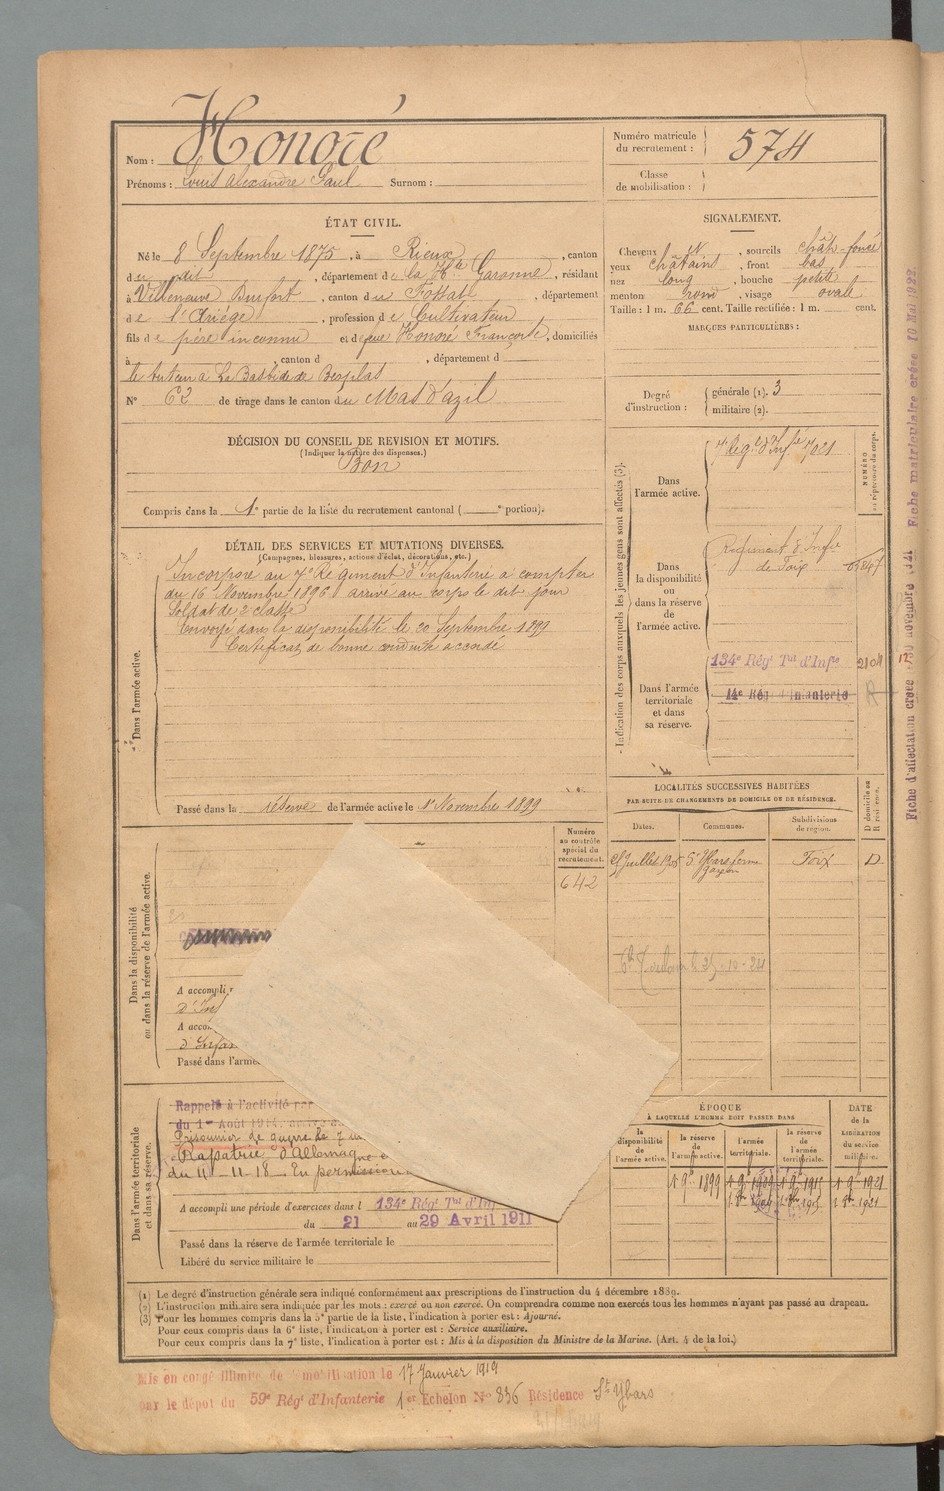 Nom : Honoré
Prénoms : Louis Alexandre Paul Surnom :
Numéro matricule du recrutement : 574
Classe de mobilisation :
ÉTAT CIVIL.
Né le 8 Septembre 1875, à Rieux, canton
du dit, département de la Hte Garonne, résidant
à Villeneuve Durfort, canton du Fossat, département
de l'Ariège, profession de Cultivateur
fils de père inconnu et de feue Honoré Françoise, domiciliés
à , canton d , département d
le tuteur à La Bastide de Besplas
N° 62 de tirage dans le canton du Mas d'azil
SIGNALEMENT.
Cheveux et , sourcils chât-foncé
yeux châtains , front bas
nez long , bouche petite
menton rond , visage ovale
Taille : 1 m. 66 cent. Taille rectifiée : 1 m. cent.
MARQUES PARTICULIÈRES :
Degré d'instruction : générale (1). 3
militaire (2).
DÉCISION DU CONSEIL DE REVISION ET MOTIFS.
(Indiquer la nature des dispenses.)
Bon
Compris dans la 1e partie de la liste du recrutement cantonal ( e portion).
DÉTAIL DES SERVICES ET MUTATIONS DIVERSES.
(Campagnes, blessures, actions d'éclat, décorations, etc.)
Dans l'armée active.
Incorporé au 7e Régiment d'Infanterie à compter
du 16 Novembre 1896. arrivé au corps le dit jour
Soldat de 2e classe
Envoyé dans la disponibilité le 20 Septembre 1899
Certificat de bonne conduite accordé
Passé dans la réserve de l'armée active le 1er Novembre 1899
Indication des corps auxquels les jeunes gens sont affectés (3).
NUMÉRO au répertoire du corps.
Dans l'armée active.
7e Régt d'Infie 7021
Dans la disponibilité ou dans la réserve de l'armée active.
Régiment d'Infie
de Foix
Dans l'armée territoriale et dans sa réserve.
134e Régt Tal d'Infie
14e Régt d'Infanterie
R
LOCALITÉS SUCCESSIVES HABITÉES
PAR SUITE DE CHANGEMENTS DE DOMICILE OU DE RÉSIDENCE.
D domicile ou R résidence.
Dates. Communes. Subdivisions de région.
Juillet 1905 St Ybars ferme Foix D
25-10-24
Dans la disponibilité ou dans la réserve de l'armée active.
Numéro au contrôle spécial du recrutement.
642
A accompli
d'Inf
A accom
d'Infan
Passé dans l'armée
Dans l'armée territoriale et dans sa réserve.
Rappelé à l'activité par
du 1er Août 1914.
Prisonnier de guerre le 7
Rapatrié d'Allemagne
du 11-11-18. En permission
A accompli une période d'exercices dans l 134e Régt Tal d'Inf
du 21 au 29 Avril 1911
Passé dans la réserve de l'armée territoriale le
Libéré du service militaire le
ÉPOQUE
À LAQUELLE L'HOMME DOIT PASSER DANS
la disponibilité de l'armée active.
la réserve de l'armée active.
l'armée territoriale.
la réserve de l'armée territoriale.
DATE de la LIBÉRATION du service militaire.
1 9bre 1899 1 9bre 1909 1 9bre 1915 1 9bre 1921
(1) Le degré d'instruction générale sera indiqué conformément aux prescriptions de l'instruction du 4 décembre 1889.
(2) L'instruction militaire sera indiquée par les mots : exercé ou non exercé. On comprendra comme non exercés tous les hommes n'ayant pas passé au drapeau.
(3) Pour les hommes compris dans la 5e partie de la liste, l'indication à porter est : Ajourné.
Pour ceux compris dans la 6e liste, l'indication à porter est : Service auxiliaire.
Pour ceux compris dans la 7e liste, l'indication à porter est : Mis à la disposition du Ministre de la Marine. (Art. 4 de la loi.)
Mis en congé illimité de démobilisation le 17 Janvier 1919
par le dépot du 59e Régt d'Infanterie 1er Echelon N° 836 Résidence St Ybars
Fiche d'affectation créée 30 novembre 1921 Fiche matriculaire créée 10 Mai 1922